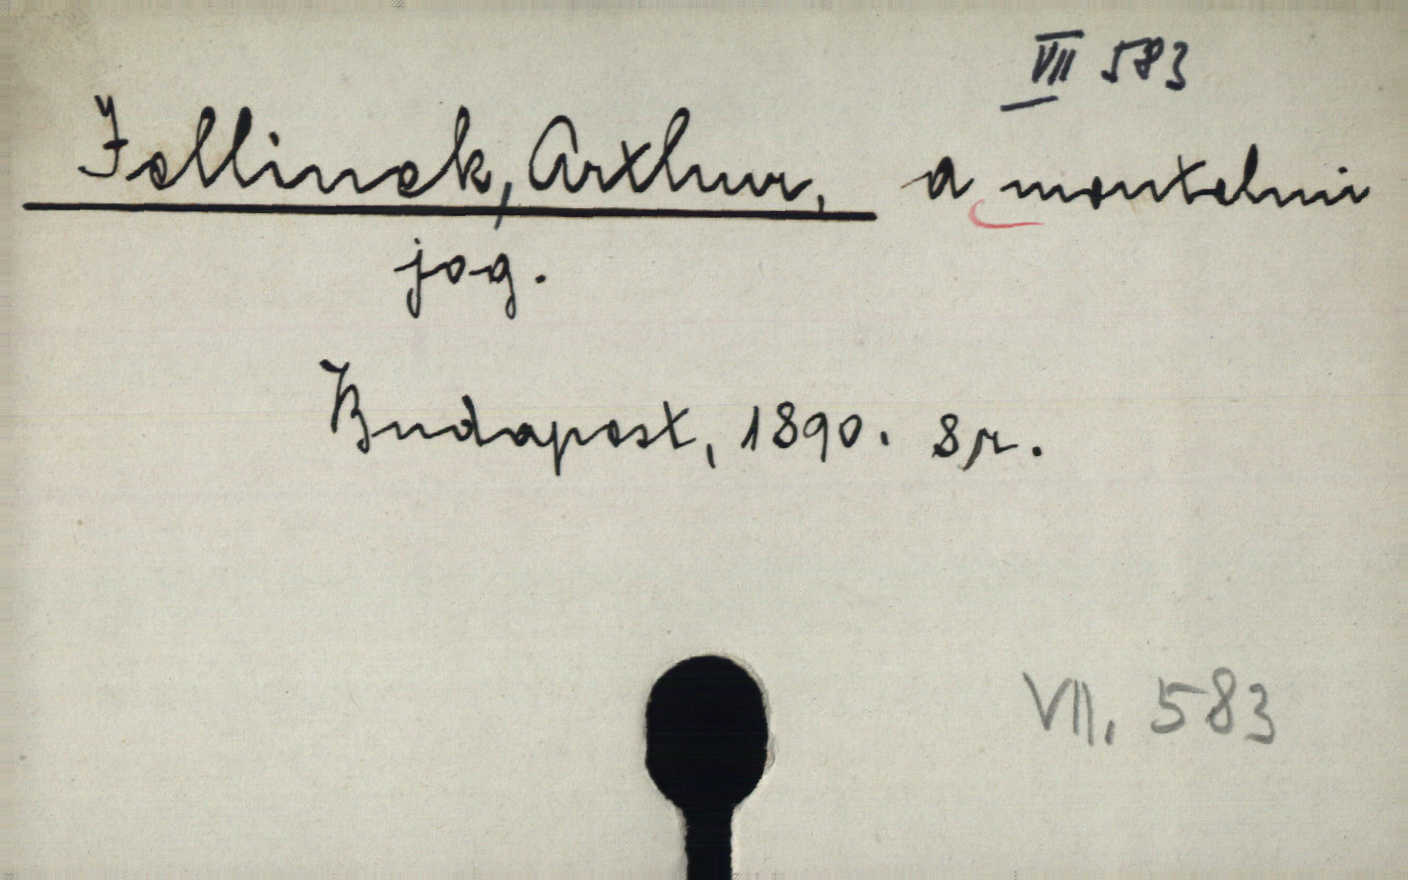 VII 583
Jellinek, Arthur, a mentelmi
jog.
Budapest, 1890. 8r.
VII. 583